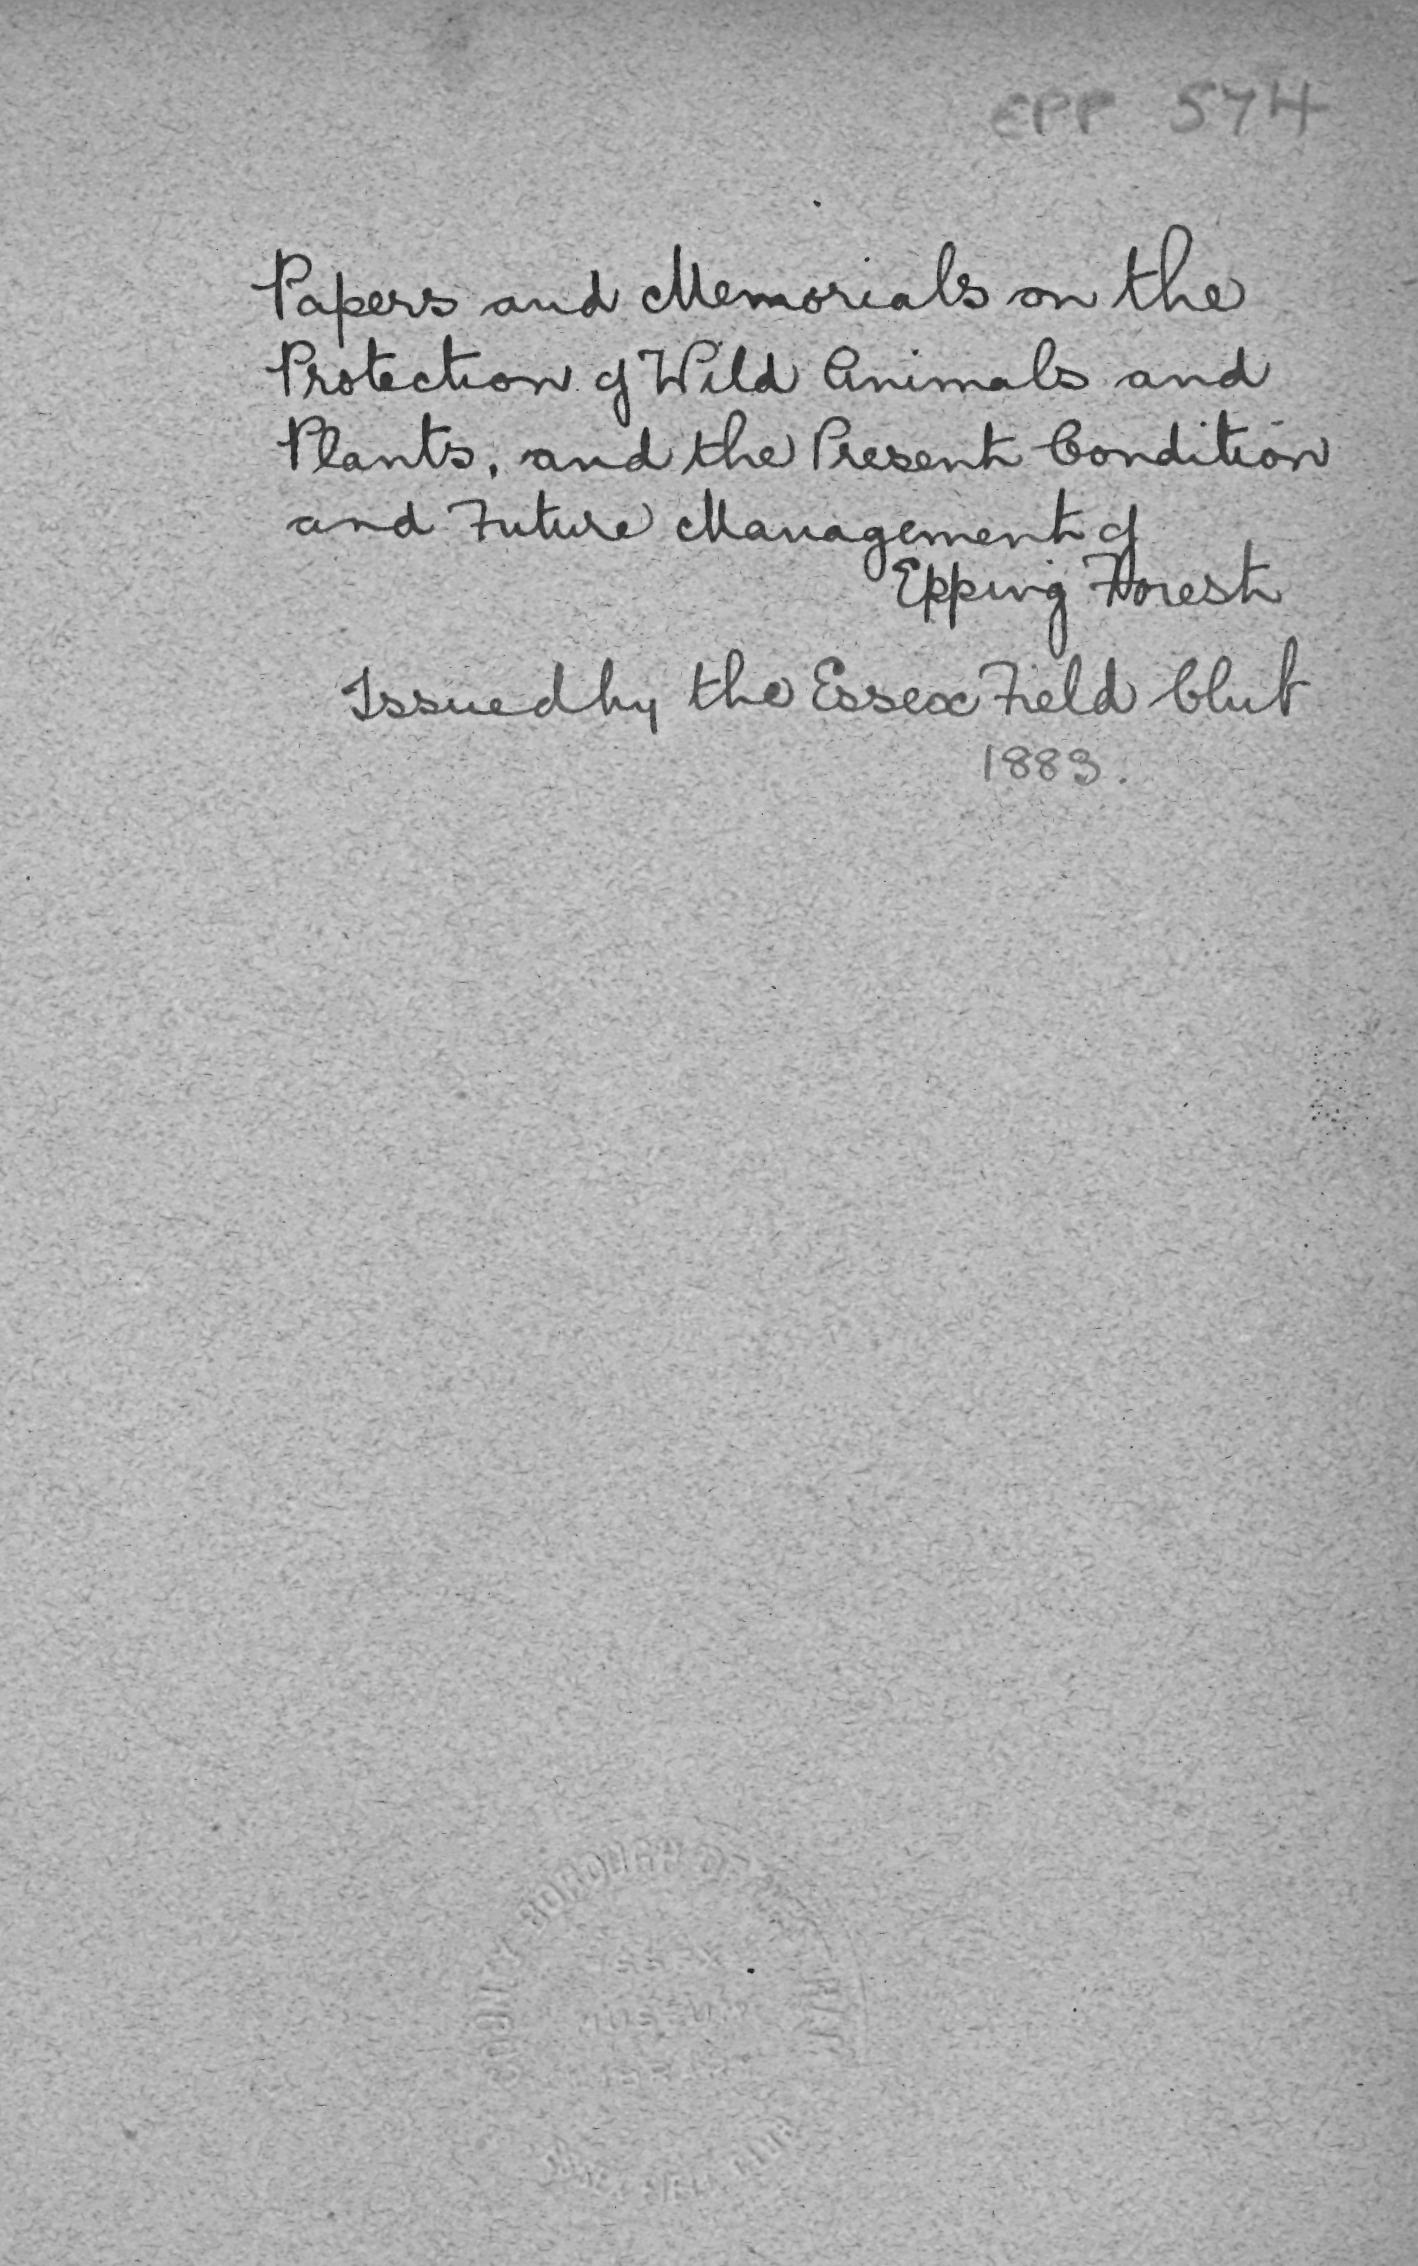 EPP 574
Papers and Memorials on the
Protection of Wild Animals and
Plants, and the Present Condition
and Future Management of
Epping Forest
Issued by the Essex Field Club
1883.
COUNTY BOROUGH OF WEST HAM
ESSEX
MUSEUM
LIBRARY
ESSEX FIELD CLUB